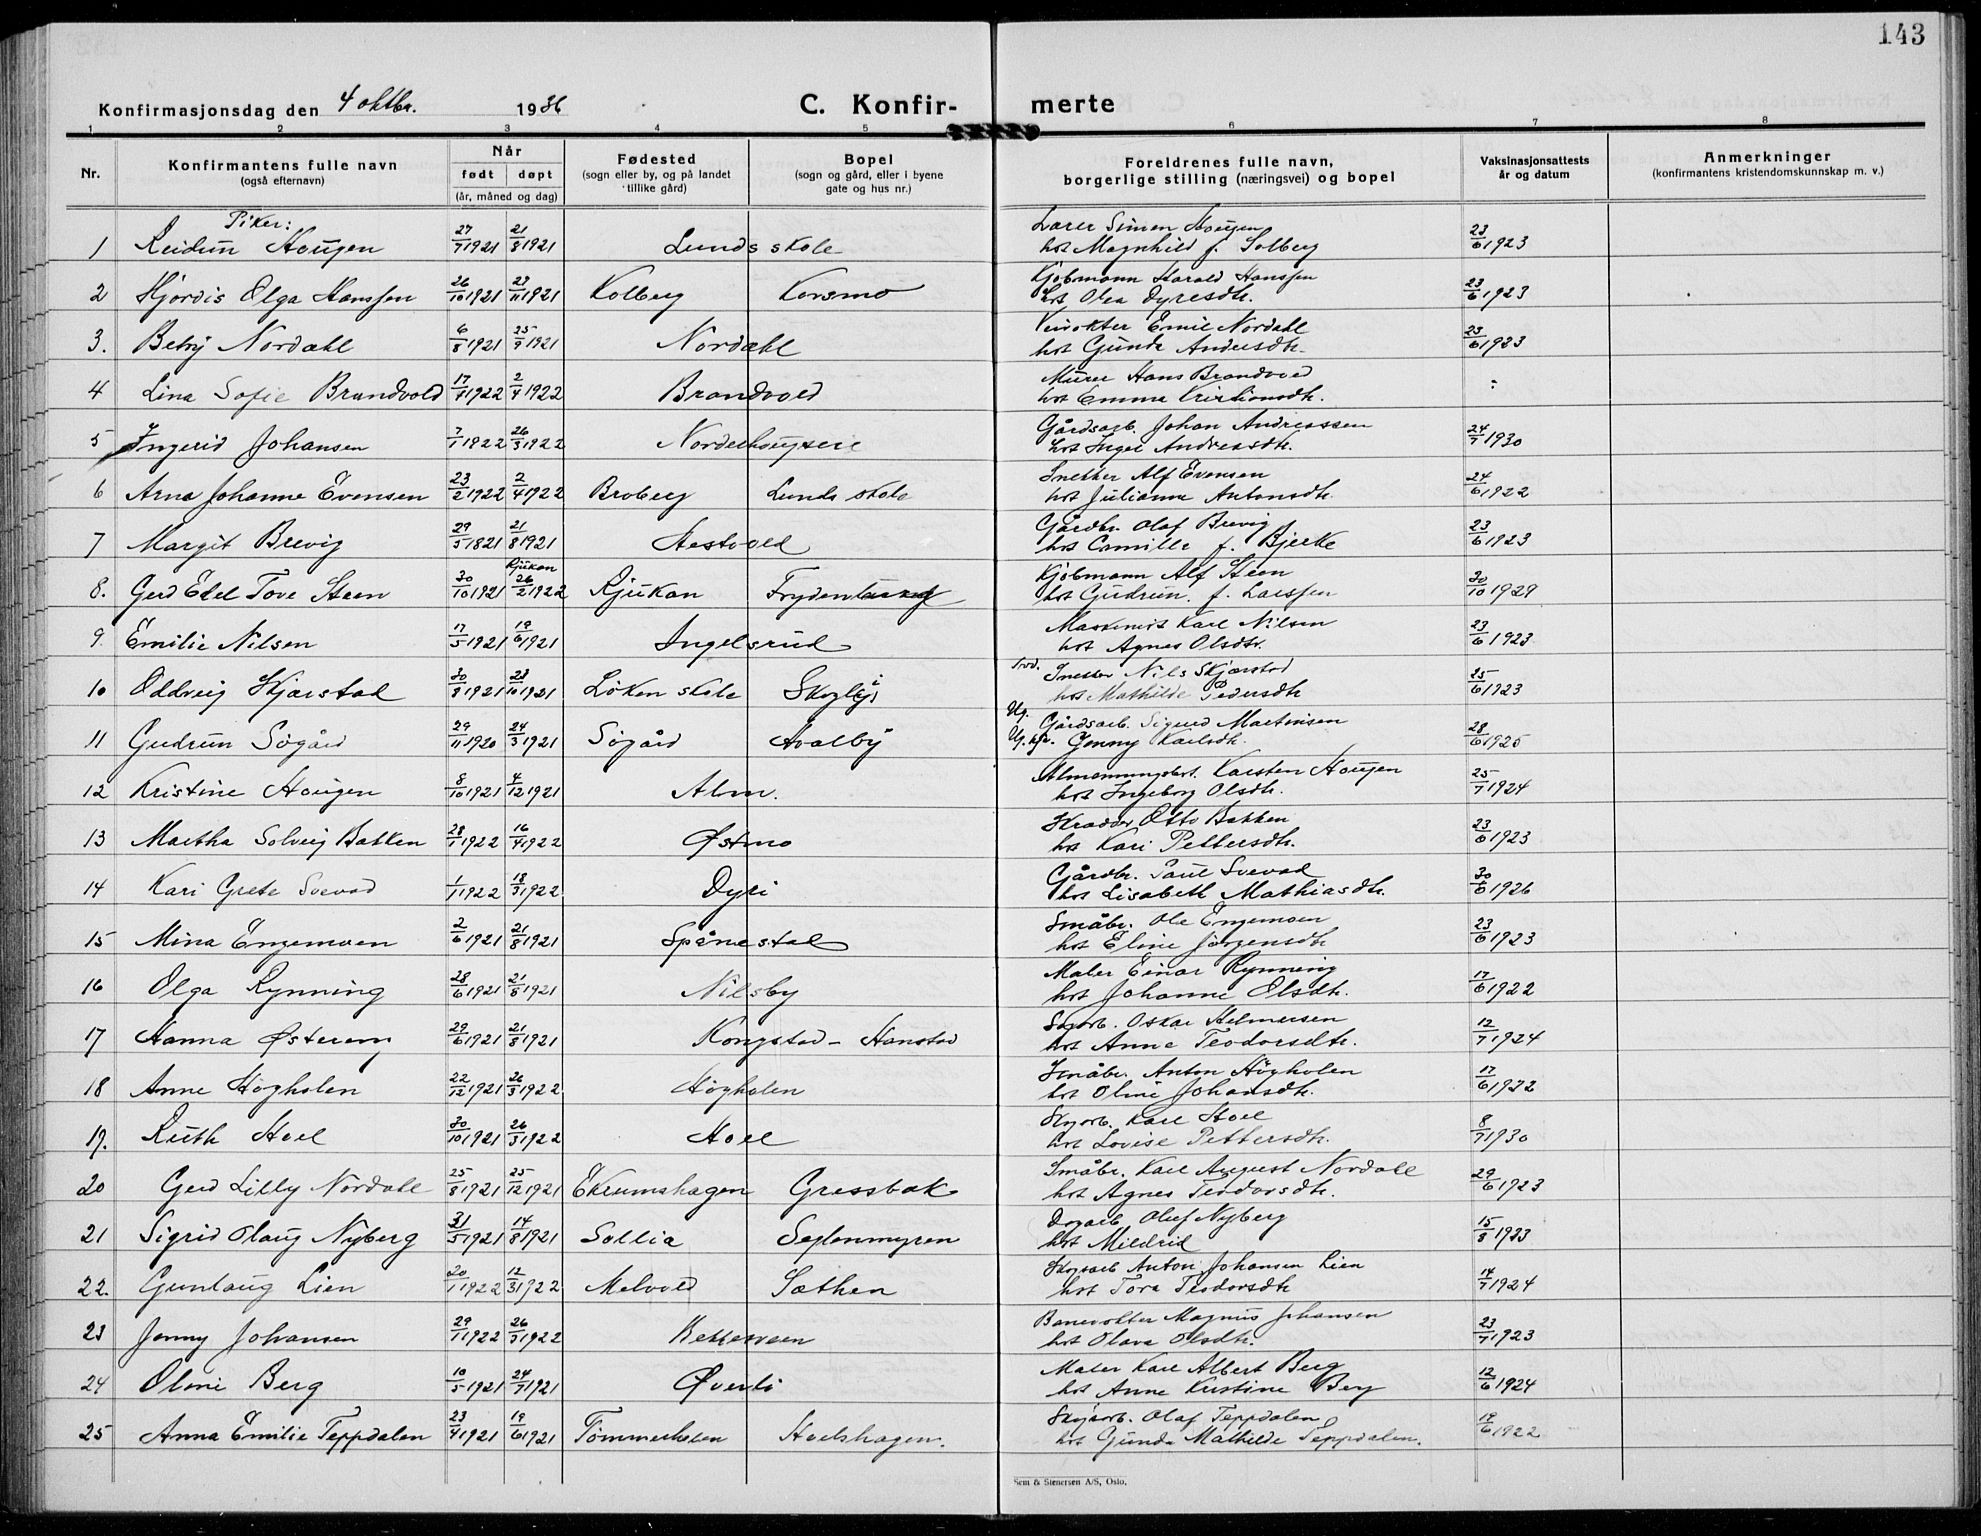 143
Konfirmasjonsdag den 4 oktbr. 1936 C. Konfir- merte
1 2 3 4 5 6 7 8
Nr. Konfirmantens fulle navn (også efternavn) Når født døpt (år, måned og dag) Fødested (sogn eller by, og på landet tillike gård) Bopel (sogn og gård, eller i byene gate og hus nr.) Foreldrenes fulle navn, borgerlige stilling (næringsvei) og bopel Vaksinasjonsattests år og datum Anmerkninger (konfirmantens kristendomskunnskap m. v.)
Piker:
Lærer Simen Hougen
1 Reidun Hougen 27/7 1921 21/8 1921 Lunds skole hst Magnhild f. Solberg 23/6 1923
Kjøbmann Harald Hanssen
2 Hjørdis Olga Hanssen 26/10 1921 27/11 1921 Kolberg Korsmo hst Olea Dyresdtr. 23/6 1923
Veivokter Emil Nordahl
3. Betsy Nordahl 6/8 1921 25/9 1921 Nordahl hst Gunda Andersdtr. 23/6 1923
Murer Hans Brandvold
4 Lina Sofie Brandvold 17/1 1922 2/4 1922 Brandvold hst Emma Kristiansdtr. -:-
Gårdsarb. Johan Andreassen
5 Ingerid Johansen 7/1 1922 26/3 1922 Norderhougseie hst Inga Andreasdtr. 24/7 1930
Snekker Alf Evensen
6 Arna Johanne Evensen 23/2 1922 2/4 1922 Broberg Lunds skole hst Julianne Antonsdtr. 24/6 1922
Gårdbr. Olaf Brevig
7 Margit Brevig 29/5 1821 21/8 1921 Aestvold hst Camilla f. Bjerke 23/6 1923
Rjukan Kjøbmann Alf Steen
8. Gerd Edel Tove Steen 30/10 1921 26/2 1922 Rjukan Frydenlund hst Gudrun f. Larssen 30/10 1929
Maskinist Karl Nilsen
9. Emilie Nilsen 17/5 1921 19/6 1921 Ingelsrud hst Agnes Olsdtr. 23/6 1923
Snekker Nils Skjærstad
10 Oddveig Skjærstad 30/8 1921 23/10 1921 Løken skole Skogly hst Mathilde Pedersdtr 25/6 1923
Ug. Gårdsarb. Sigurd Martinsen
11 Gudrun Søgård 29/11 1920 24/3 1921 Søgård Avalby Ug. kv. Jenny Karlsdtr. 28/6 1925
Almenningsbst. Karsten Hougen
12 Kristine Hougen 8/10 1921 4/12 1921 Alm. hst Ingeborg Olsdtr. 25/7 1924
Skredder Otto Bakken
13 Martha Solveig Bakken 28/1 1922 16/4 1922 Østmo hst Kari Pettersdtr. 23/6 1923
Gårdbr. Paul Svevad
14 Kari Grete Svevad 1/1 1922 18/3 1922 Dyri hst Lisabeth Mathiasdtr. 30/6 1926
Småbr. Ole Engemoen
15 Mina Engemoen 2/6 1921 21/8 1921 Spånestad hst Eline Jørgensdtr 23/6 1923
Maler Einar Rynning
16 Olga Rynning 28/6 1921 21/8 1921 Nilsby hst Johanne Olsdtr. 17/6 1922
Skogarb. Oskar Helmersen
17 Hanna Østerem 29/6 1921 21/8 1921 Kongstad - Hanstad hst Anna Teodorsdtr. 12/7 1924
Småbr. Anton Høgholen
18 Anne Høgholen 22/12 1921 26/3 1922 Høgholen hst Oline Johansdtr. 17/6 1922
Skogarb. Karl Hoel
19. Ruth Hoel 30/10 1921 26/3 1922 Hoel hst Lovise Pettersdtr. 8/7 1930
Småbr. Karl August Nordahl
20 Gerd Lilly Nordahl 25/8 1921 25/12 1921 Ekrumshagen Gressbak hst Agnes Teodorsdtr. 29/6 1923
Dagarb. Oluf Nyberg
21 Sigrid Olaug Nyberg 31/5 1921 14/8 1921 Sollia Seglenmyren hst Mildrid 15/8 1933
Skogsarb Anton Johansen Lien
22. Gunlaug Lien 20/1 1922 12/3 1922 Melvold Sæthen hst Tora Teodorsdtr 14/7 1924
Banevokter Magnus Johansen
23 Jenny Johansen 29/1 1922 26/3 1922 hst Olava Olsdtr. 23/7 1923
Maler Karl Albert Berg
24 Oline Berg 10/5 1921 24/7 1921 Øverli hst Anne Kristine Berg 12/6 1924
Skogarb. Olaf Teppdalen
25 Anna Emilie Teppdalen 23/4 1921 19/6 1921 Tømmerholen Hoelshagen. hst Gunda Mathilde Teppdalen. 19/6 1922
Sem & Stenersen A/S, Oslo.